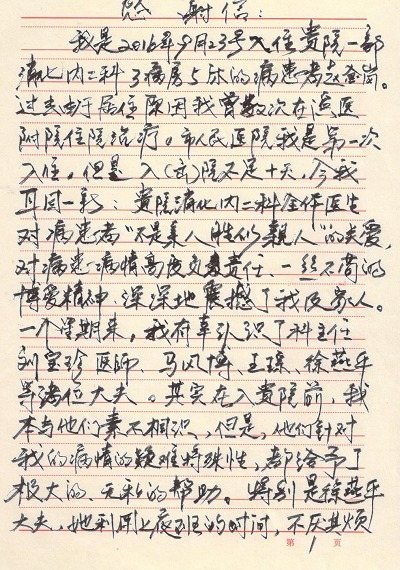 感谢信:
我是2016年9月23号入住贵院一部
消化内二科3病房5床的病患者赵登岗。
过去由于居住原因我曾数次在滨医
附院住院治疗。市人民医院我是第一次
入住,但是入(贵)院不足十天,令我
耳目一新:贵院消化内二科全体医生
对病患者"不是亲人胜似亲人"的关爱,
对病患病情高度负责责任、一丝不苟的
博爱精神,深深地震撼了我及家人。
一个星期来,我有幸认识了科主任
刘宝珍医师、马风博、王琛、徐燕平
等诸位大夫。其实在入贵院前,我
本与他们素不相识,但是,他们针对
我的病情的疑难特殊性,都给予了
极大的、无私的帮助。特别是徐燕平
大夫,她利用上夜班的时间,不厌其烦
第 1 页